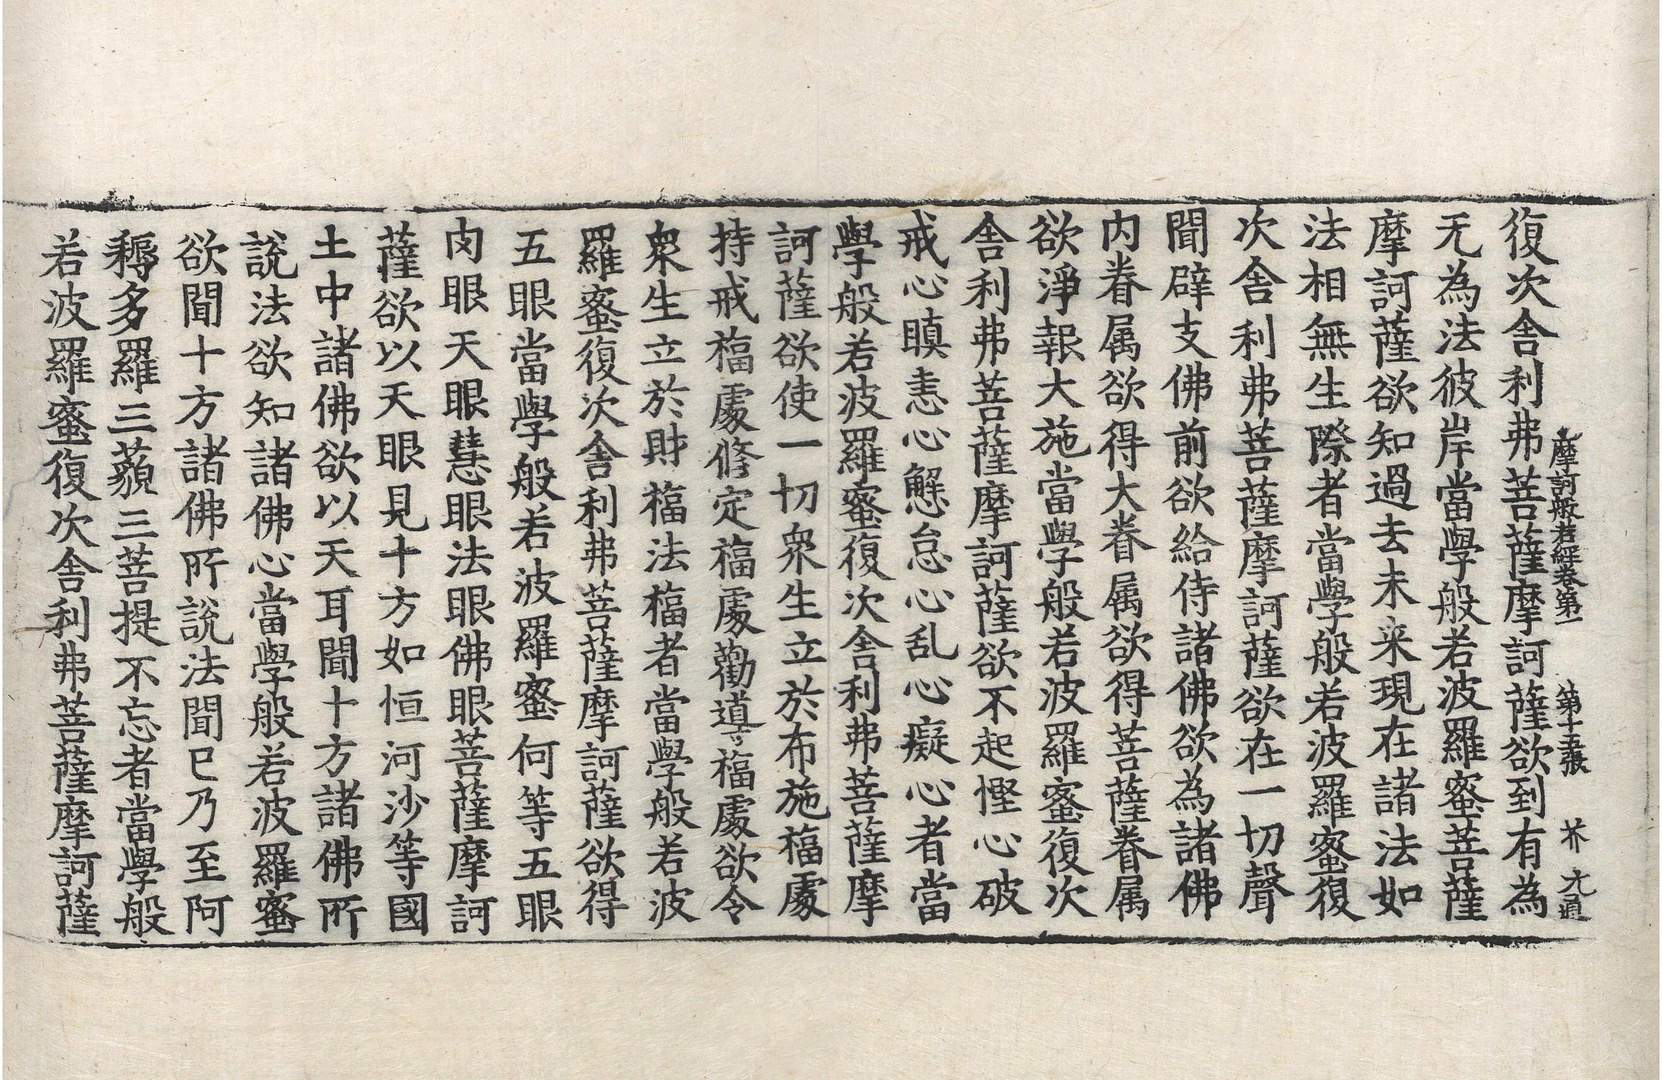 摩訶般若經卷第一 第十五張 芥 九温
復次舍利弗菩薩摩訶薩欲到有為
无為法彼岸當學般若波羅蜜菩薩
摩訶薩欲知過去未来現在諸法如
法相無生際者當學般若波羅蜜復
次舍利弗菩薩摩訶薩欲在一切聲
聞辟支佛前欲給侍諸佛欲為諸佛
內眷属欲得大眷属欲得菩薩眷属
欲淨報大施當學般若波羅蜜復次
舍利弗菩薩摩訶薩欲不起慳心破
戒心瞋恚心懈怠心乱心癡心者當
學般若波羅蜜復次舍利弗菩薩摩
訶薩欲使一切衆生立於布施福處
持戒福處修定福處勸導福處欲令
衆生立於財福法福者當學般若波
羅蜜復次舍利弗菩薩摩訶薩欲得
五眼當學般若波羅蜜何等五眼
肉眼天眼慧眼法眼佛眼菩薩摩訶
薩欲以天眼見十方如恒河沙等國
土中諸佛欲以天耳聞十方諸佛所
說法欲知諸佛心當學般若波羅蜜
欲聞十方諸佛所說法聞已乃至阿
耨多羅三藐三菩提不忘者當學般
若波羅蜜復次舍利弗菩薩摩訶薩